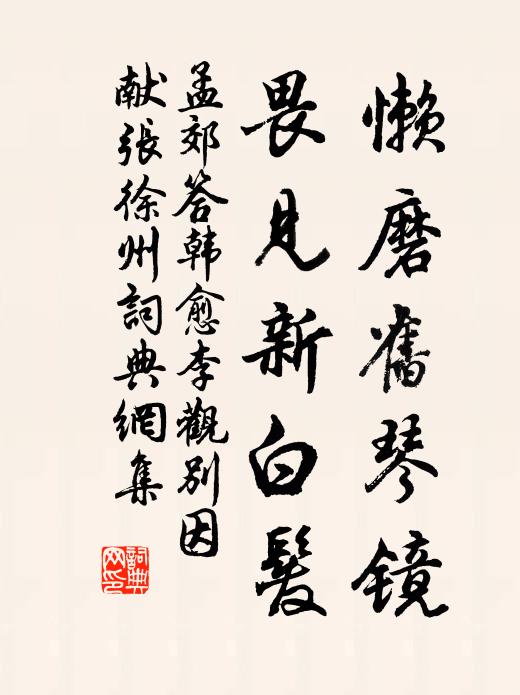 懒磨舊琴鏡
畏見新白髮
孟郊答韩愈李觀別因
献張徐州詞典網集
詞典网印